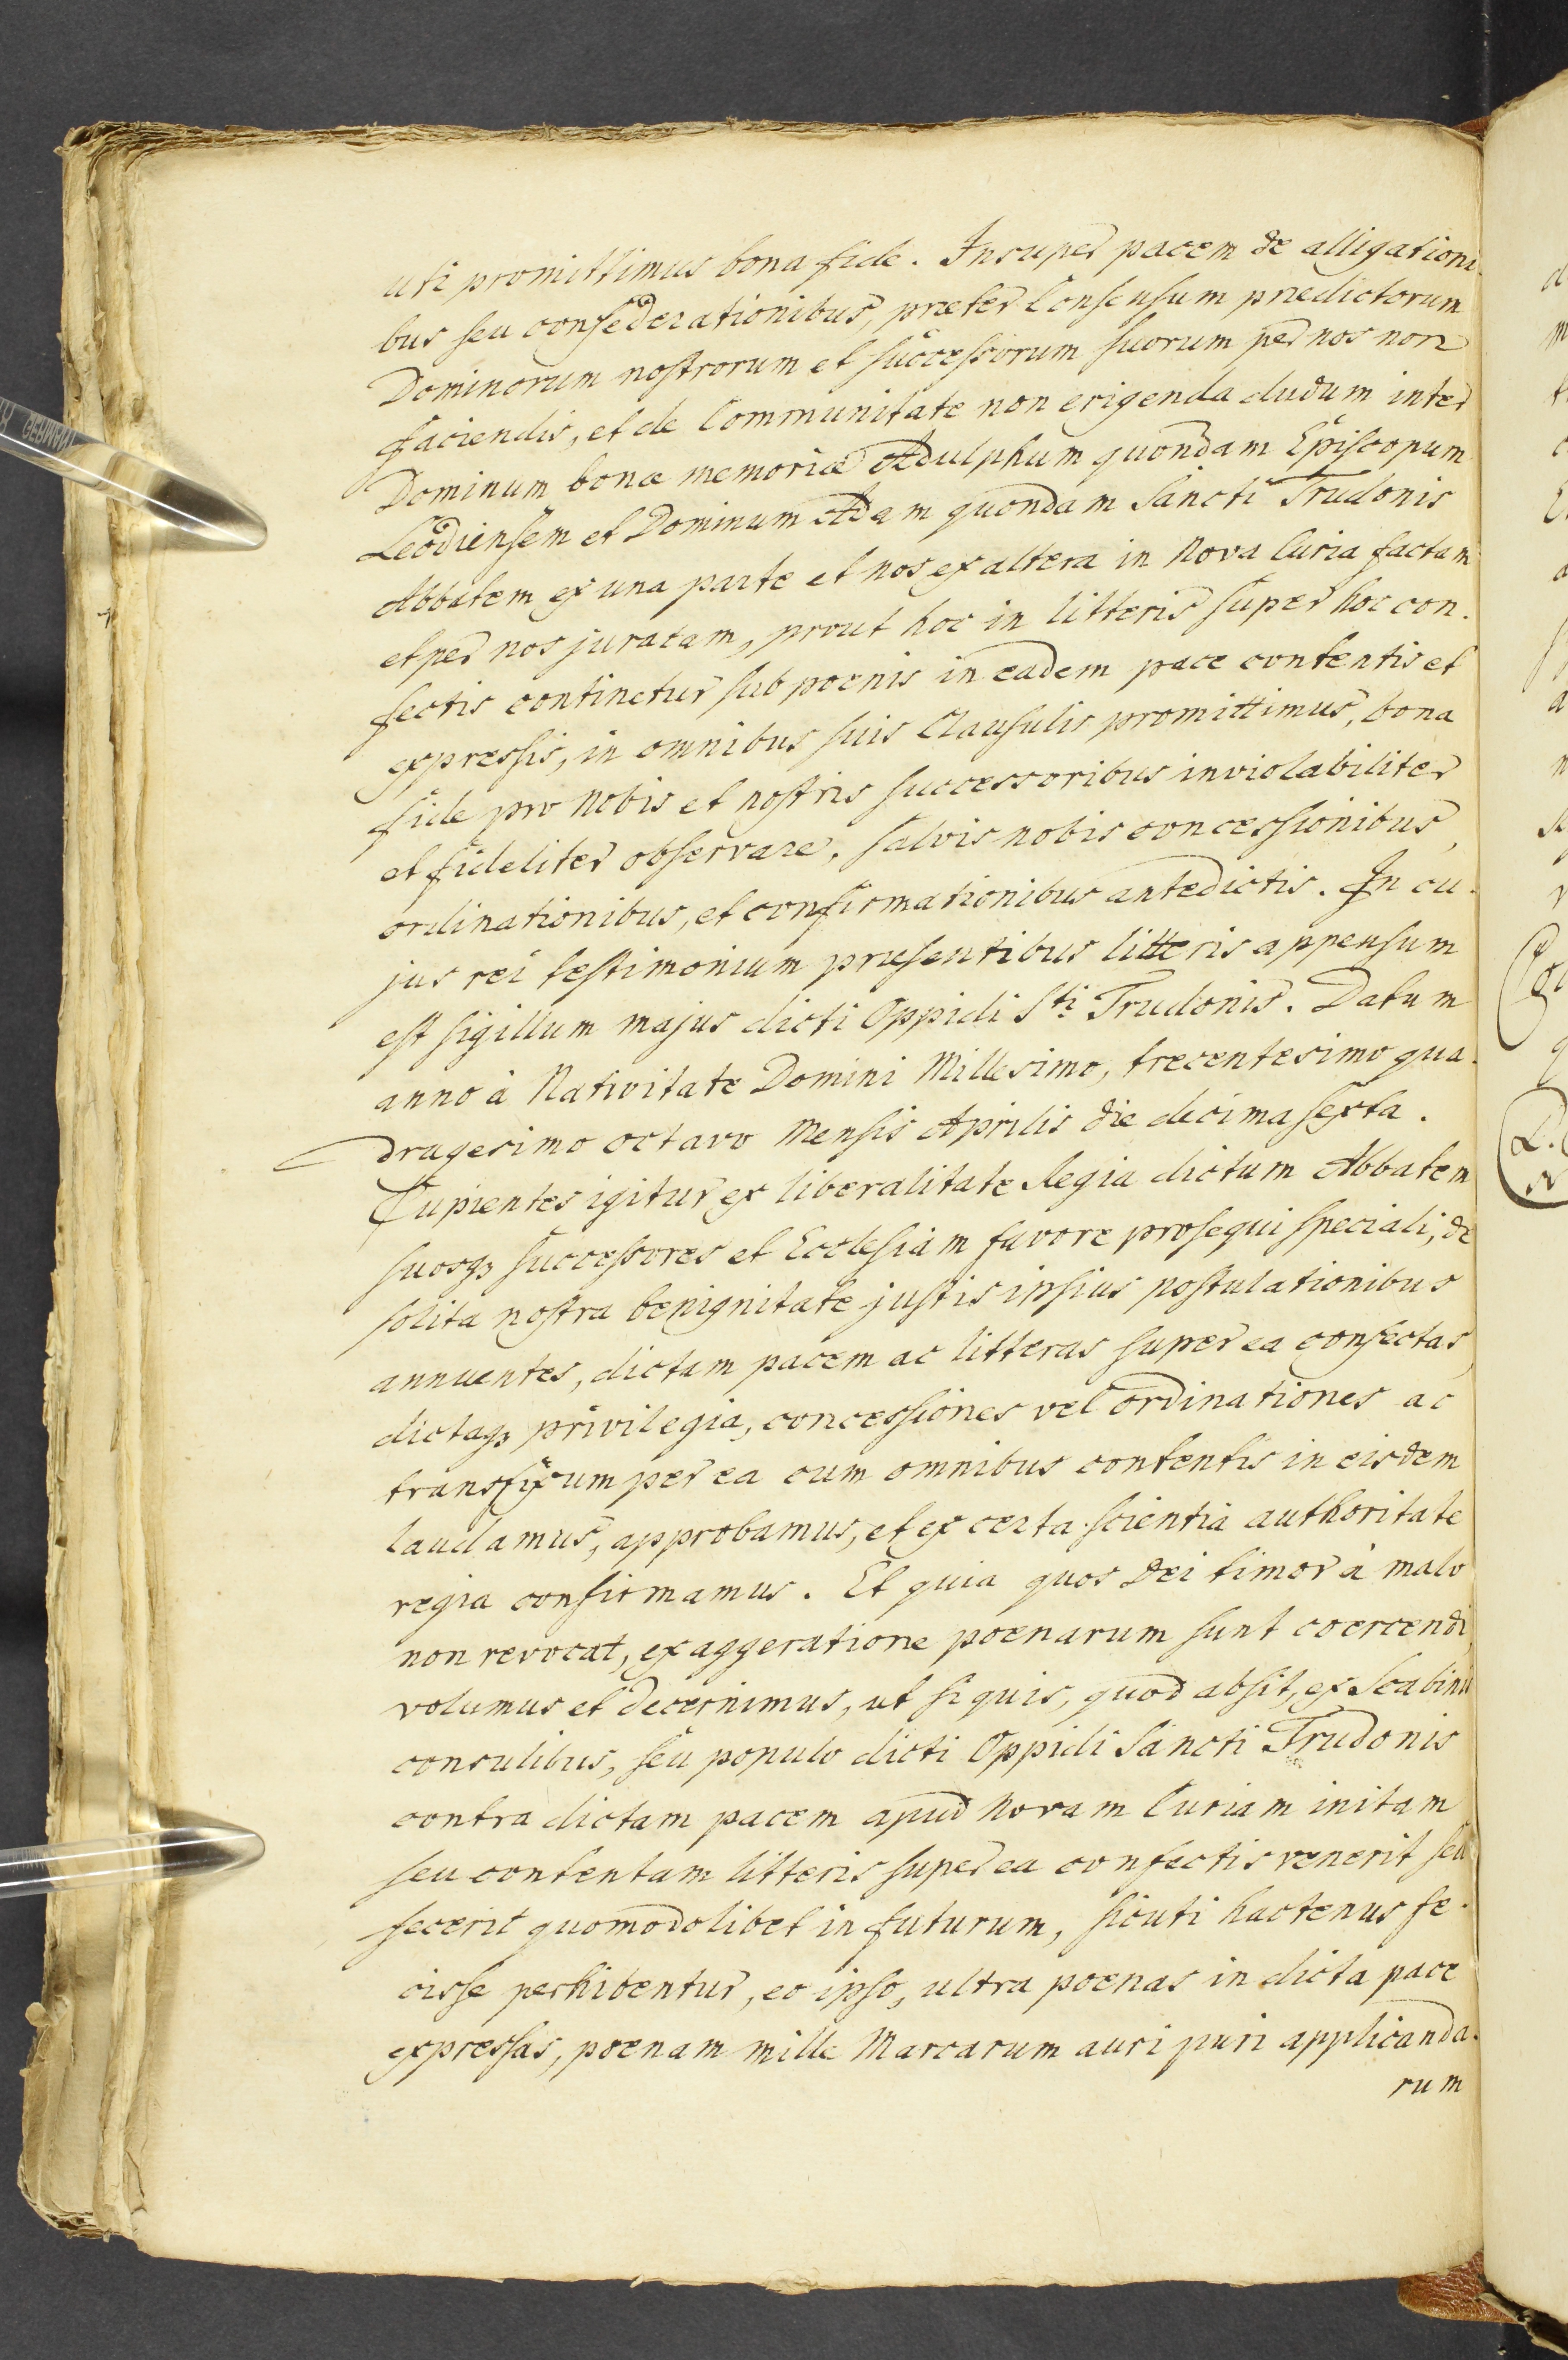 uti promittimus bona fide. Insuper pacem de alligationi-
bus seu confederationibus, præter Consensum prædictorum
Dominorum nostrorum et successorum suorum per nos non
faciendis, et de Communitate non erigenda dudum inter
Dominum bonæ memoriæ Adulphum quondam Episcopum
Leodiensem et Dominum Adam quondam Sancti Trudonis
Abbatem ex una parte et nos ex altera in Nova Curia factam
et per nos juratam, prout hoc in litteris super hoc con-
fectis continetur sub poenis in eadem pace contentis et
expressis, in omnibus suis Clausulis promittimus, bona
fide pro Nobis et nostris successoribus inviolabiliter
et fideliter observare, salvis nobis concessionibus,
ordinationibus, et confirmationibus antedictis. In cu-
jus rei testimonium præsentibus litteris appensum
est sigillum majus dicti Oppidi Sti Trudonis. Datum
anno à Nativitate Domini Millesimo, trecentesimo qua-
dragesimo octavo Mensis Aprilis die decima sexta.
Cupientes igitur ex liberalitate Regia dictum Abbatem
suosq3 successores et Ecclesiam favore prosequi speciali, de
solita nostra benignitate justis ipsius postulationibus
annuentes, dictam pacem ac litteras super ea confectas,
dictaq3 privilegia, concessiones vel ordinationes ac
transfixum per ea cum omnibus contentis in eisdem
laudamus, approbamus, et ex certa scientia authoritate
regia confirmamus. Et quia quos Dei timor à malo
non revocat, exaggeratione poenarum sunt coercendi,
volumus et decernimus, ut si quis, quod absit, ex Scabinis
consulibus, seu populo dicti Oppidi Sancti Trudonis
contra dictam pacem apud Novam Curiam initam
seu contentam litteris super ea confectis venerit seu
fecerit quomodolibet in futurum, sicuti hactenus fe-
cisse perhibentur, eo ipso, ultra poenas in dicta pace
expressas, poenam mille Marcarum auri puri applicanda-
rum